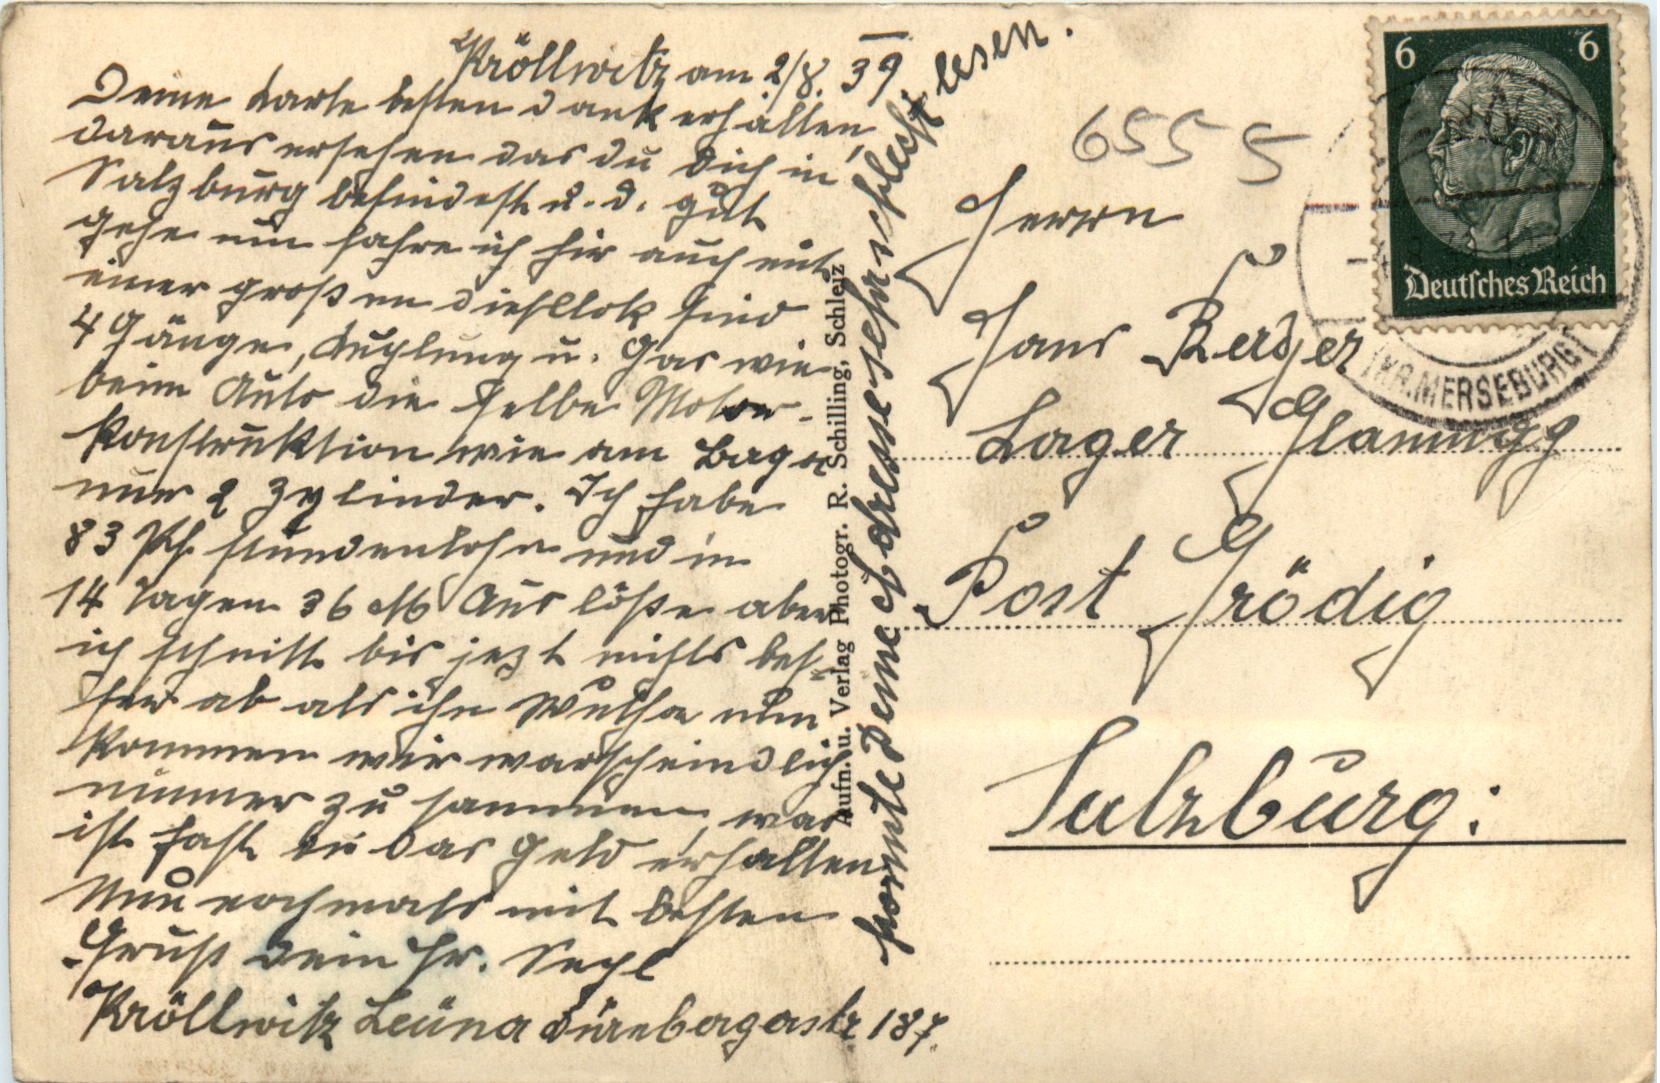 Kröllwitz am 2/8. 39
Deine Karte besten Dank erhalten,
daraus ersehen das du dich in
Salzburg befindest u. d. gut
gehe nun fahre ich hir auch mit
einer großen Diesllok sind
4 Gänge, Kuplung u. Gas wie
beim Auto die selbe Motor-
Konstruktion wie am Bager
nur 2 Zylinder. Ich habe
83 Pf. stundenlohn und in
14 Tagen 36 M Auslöße aber
ich schnitt bis jezt nichts bes-
ser ab als in
kommen wir warscheindlich
nimmer zu sammen, was
ist hast du das Geld erhalten
Nun nochmals mit besten
Gruß dein Fr. Sepl
Kröllwitz Leuna Dürenbergerstr 187.
konnte Deine Adresse sehr schlecht lesen.
Aufn. u. Verlag Photogr. R. Schilling, Schleiz
6555
Herrn
Hans Berger
Lager Glanegg
Post Grödig
Salzburg:
6 6
Deutsches Reich
(KR. MERSEBURG)